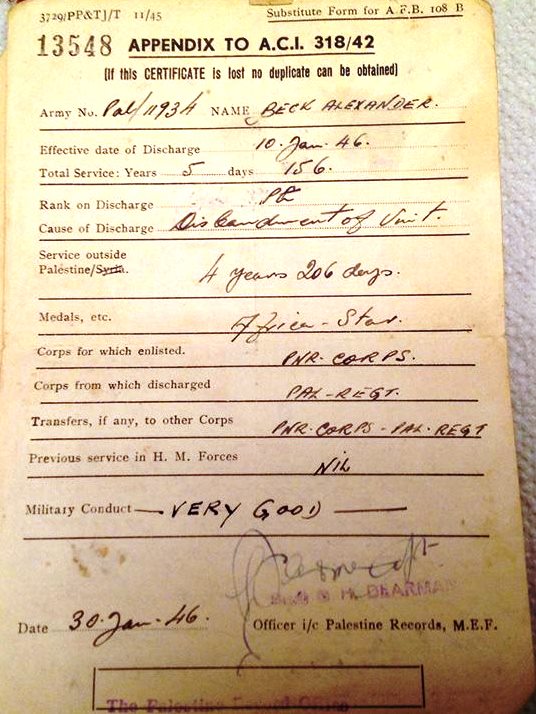 3729/PP&TJ/T 11/45 Substitute Form for A.F.B. 108 B
13548 APPENDIX TO A.C.I. 318/42
(If this CERTIFICATE is lost no duplicate can be obtained)
Army No. Pal/11934 NAME BECK ALEXANDER.
Effective date of Discharge 10. Jan. 46.
Total Service: Years 5 days 156.
Rank on Discharge Pte
Cause of Discharge Disbandment of Unit.
Service outside
Palestine/Syria. 4 years 206 days.
Medals, etc. Africa-Star.
Corps for which enlisted. PNR-CORPS.
Corps from which discharged PAL-REGT.
Transfers, if any, to other Corps PNR-CORPS-PAL-REGT
Previous service in H. M. Forces NIL
Military Conduct — VERY GOOD —
H. DEARMAN
Date 30. Jan. 46. Officer i/c Palestine Records, M.E.F.
The Palestine Record Office